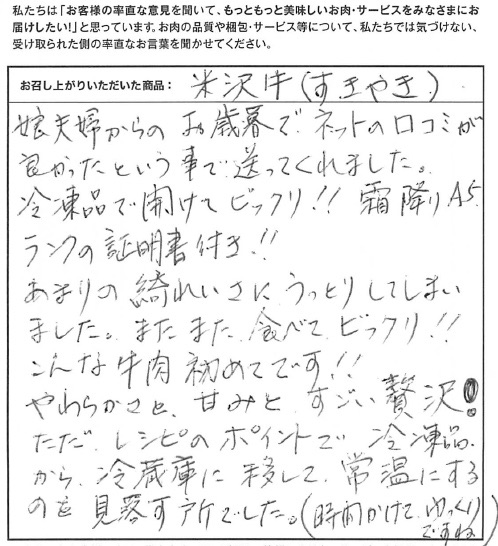 私たちは「お客様の率直な意見を聞いて、もっともっと美味しいお肉・サービスをみなさまにお
届けしたい!」と思っています。お肉の品質や梱包・サービス等について、私たちでは気づけない、
受け取られた側の率直なお言葉を聞かせてください。
お召し上がりいただいた商品: 米沢牛(すきやき)
娘夫婦からの お歳暮で ネットの口コミが
良かったという事で送ってくれました。
冷凍品で開けて ビックリ!! 霜降り A5
ランクの証明書付き!!
あまりの綺れいさに うっとりしてしまい
ました。またまた 食べて ビックリ!!
こんな牛肉 初めてです!!
やわらかさと、甘みと すごい贅沢!
ただ レシピの ポイントで 冷凍品
から、冷蔵庫に 移して 常温にする
のを 見落す所でした。(時間かけて ゆっくり
ですね)